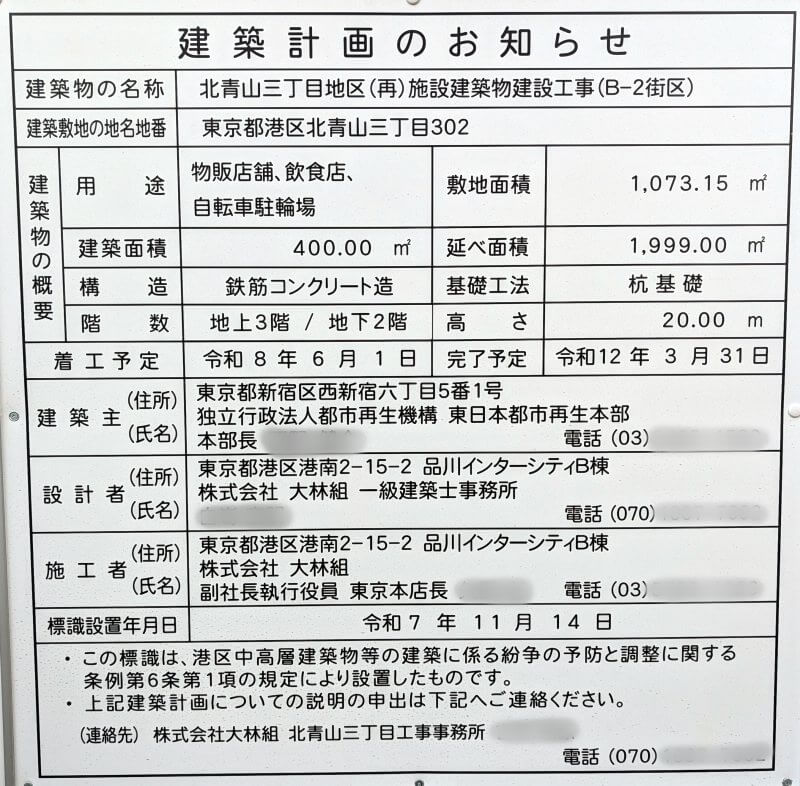 建築計画のお知らせ
建築物の名称 北青山三丁目地区(再)施設建築物建設工事(B-2街区)
建築敷地の地名地番 東京都港区北青山三丁目302
建築物の概要
用途 物販店舗、飲食店、 敷地面積 1,073.15 ㎡
自転車駐輪場
建築面積 400.00 ㎡ 延べ面積 1,999.00 ㎡
構造 鉄筋コンクリート造 基礎工法 杭基礎
階数 地上3階 / 地下2階 高さ 20.00 m
着工予定 令和8年6月1日 完了予定 令和12年3月31日
建築主 (住所) 東京都新宿区西新宿六丁目5番1号
独立行政法人都市再生機構 東日本都市再生本部
(氏名) 本部長 電話 (03)
設計者 (住所) 東京都港区港南2-15-2 品川インターシティB棟
株式会社 大林組 一級建築士事務所
(氏名) 電話 (070)
施工者 (住所) 東京都港区港南2-15-2 品川インターシティB棟
株式会社 大林組
(氏名) 副社長執行役員 東京本店長 電話 (03)
標識設置年月日 令和7年11月14日
・この標識は、港区中高層建築物等の建築に係る紛争の予防と調整に関する
条例第6条第1項の規定により設置したものです。
・上記建築計画についての説明の申出は下記へご連絡ください。
(連絡先) 株式会社大林組 北青山三丁目工事事務所
電話 (070)